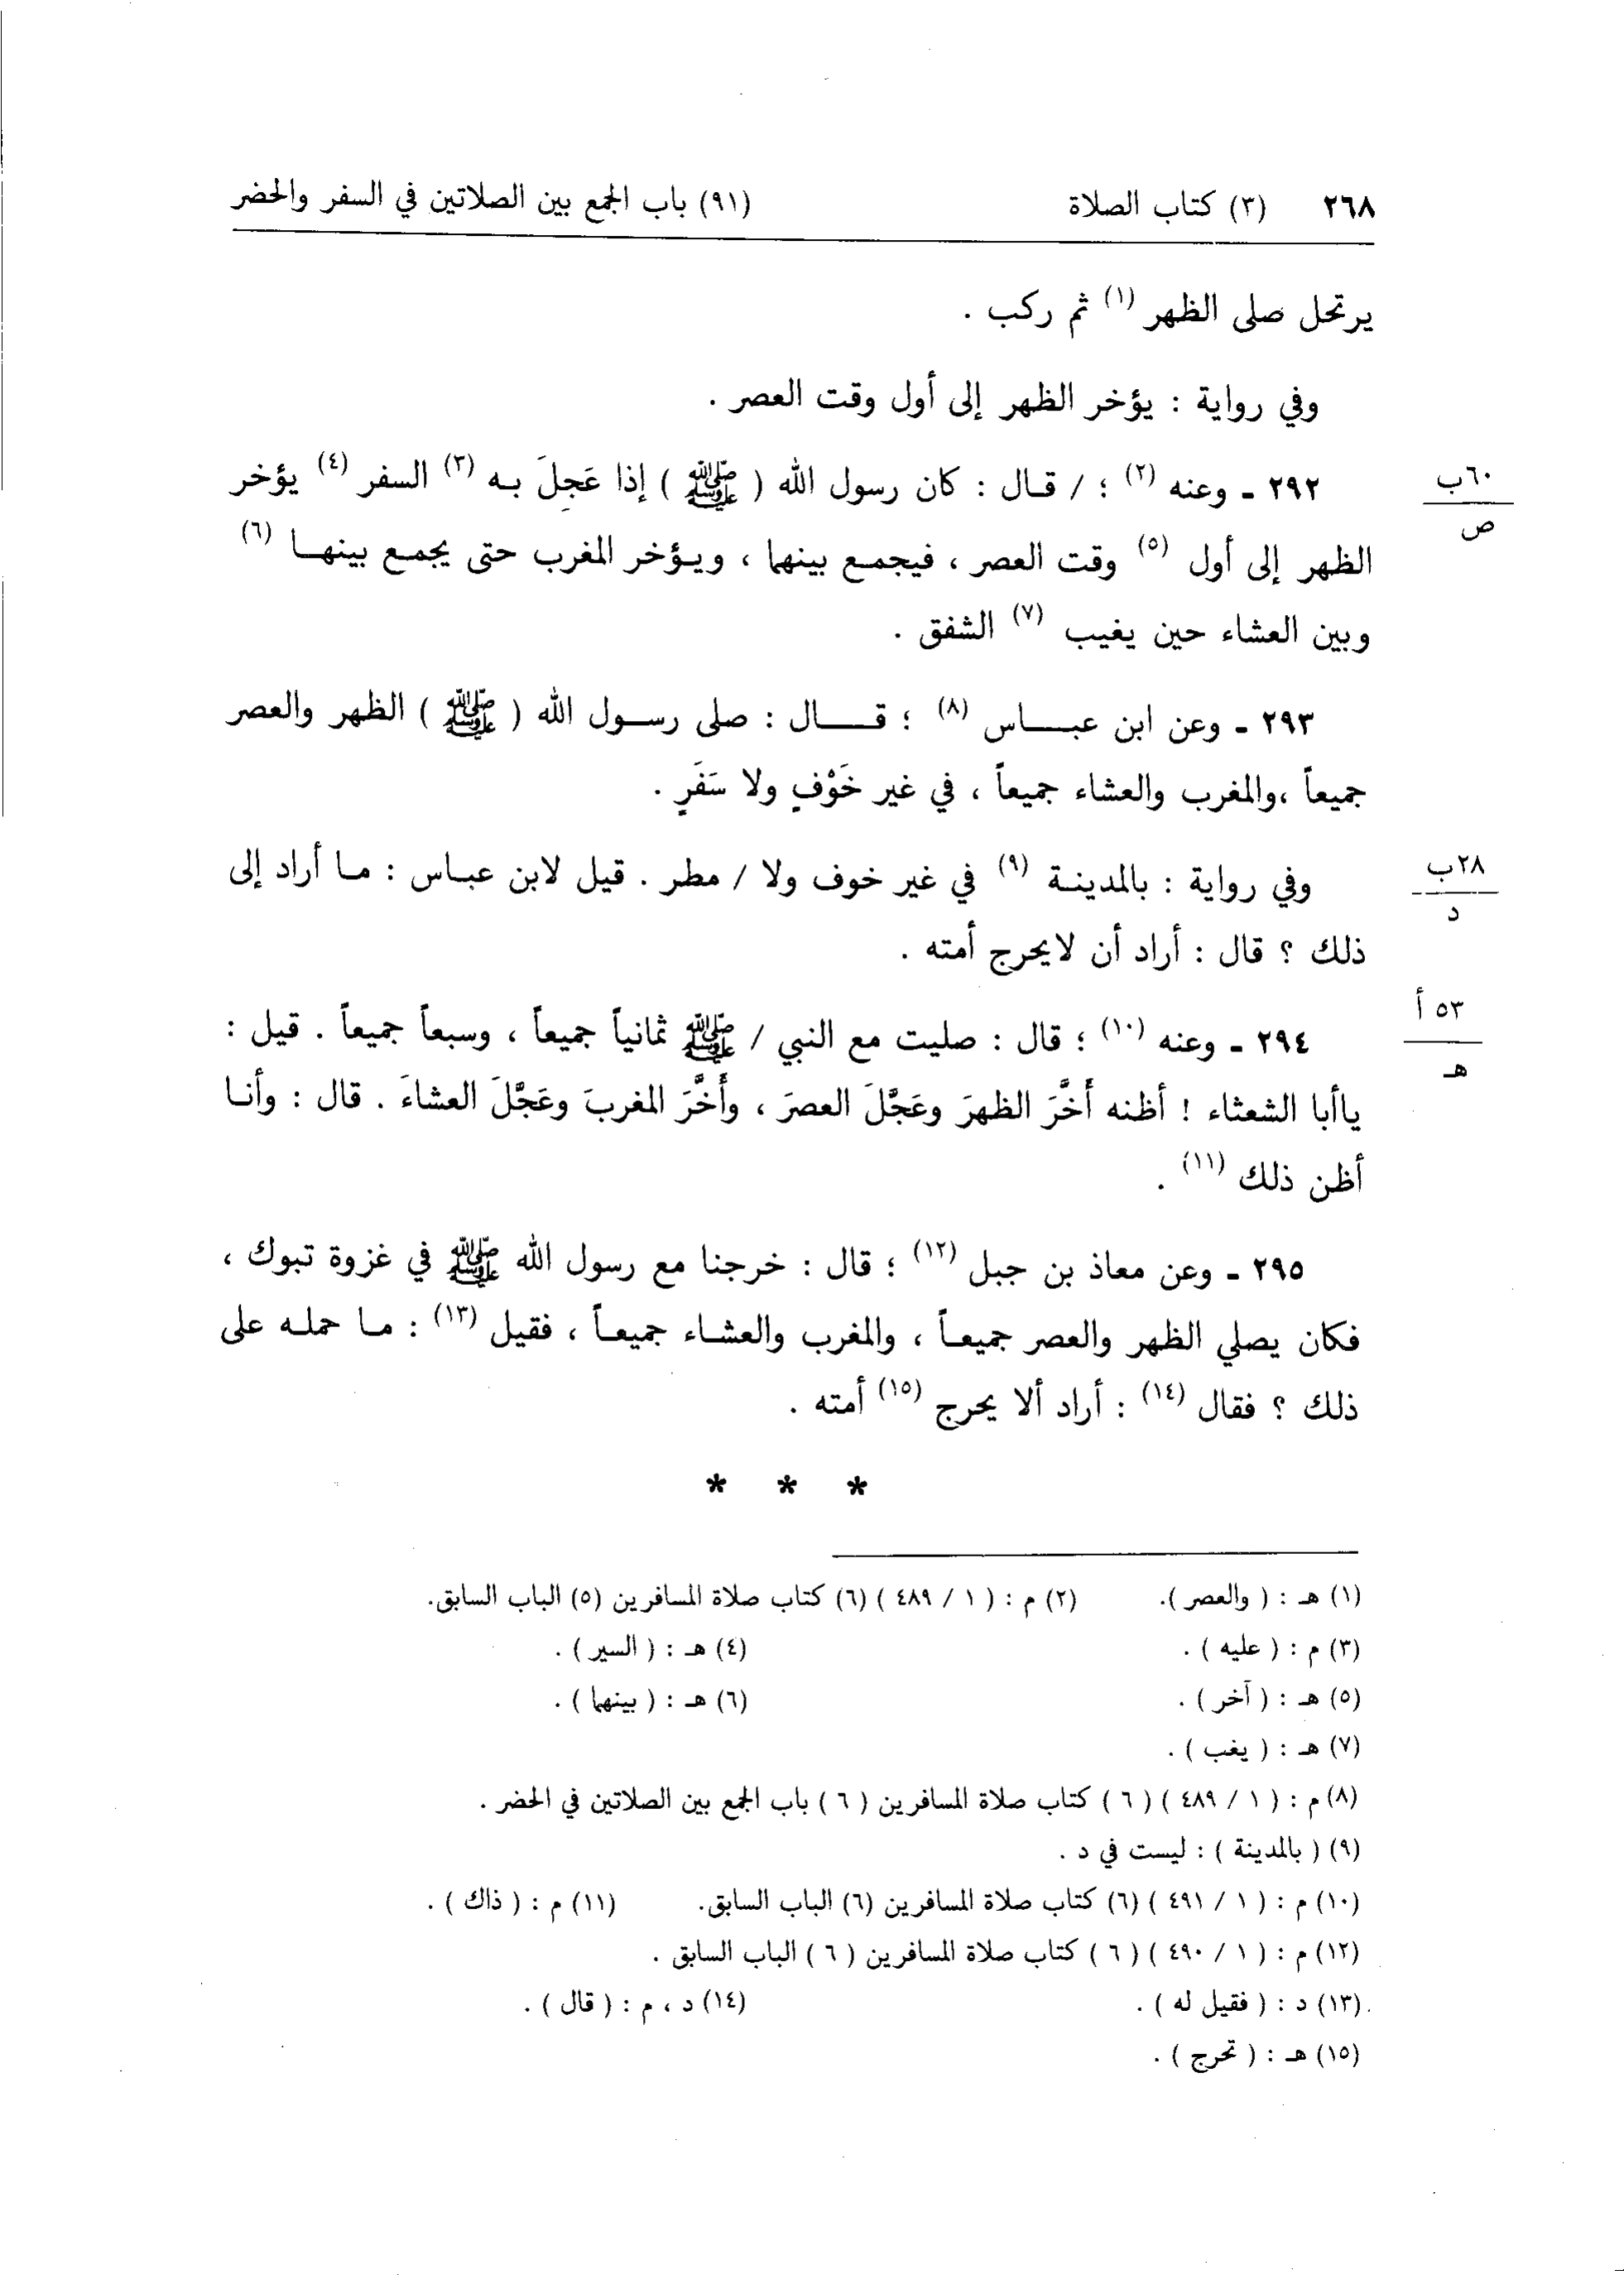 ٢٦٨ (٣) كتاب الصلاة (٩١) باب الجمع بين الصلاتين في السفر والحضر
يرتحل صلى الظهر (١) ثم ركب .
وفي رواية : يؤخر الظهر إلى أول وقت العصر .
٢٩٢ ـ وعنه (٢) ؛ / قـال : كان رسول الله ( ﷺ ) إذا عَجِلَ بـه (٣) السفر (٤) يؤخر
٦٠ب
ص
الظهر إلى أول (٥) وقت العصر ، فيجمـع بينهما ، ويـؤخر المغرب حتى يجمـع بينهـا (٦)
وبين العشاء حين يغيب (٧) الشفق .
٢٩٣ ـ وعن ابن عبـــاس (٨) ؛ قــــال : صلى رســول الله ( ﷺ ) الظهر والعصر
جميعاً ،والمغرب والعشاء جميعاً ، في غير خَوْفٍ ولا سَفَرٍ .
وفي رواية : بالمدينـة (٩) في غير خوف ولا / مطر . قيل لابن عبـاس : مـا أراد إلى
٢٨ب
د
ذلك ؟ قال : أراد أن لايحرج أمته .
٢٩٤ ـ وعنه (١٠) ؛ قال : صليت مع النبي / ﷺ ثمانياً جميعاً ، وسبعاً جميعاً . قيل :
٥٣ أ
هـ
ياأبا الشعثاء ! أظنه أَخَّرَ الظهرَ وعَجَّلَ العصرَ ، وأَخَّرَ المغربَ وعَجَّلَ العشاءَ . قال : وأنـا
أظن ذلك (١١) .
٢٩٥ ـ وعن معاذ بن جبل (١٢) ؛ قال : خرجنا مع رسول الله ﷺ في غزوة تبوك ،
فكان يصلي الظهر والعصر جميعـاً ، والمغرب والعشـاء جميعـاً ، فقيل (١٣) : مـا حملـه على
ذلك ؟ فقال (١٤) : أراد ألا يحرج (١٥) أمته .
* * *
(١) هـ : ( والعصر ). (٢) م : ( ١ / ٤٨٩ ) (٦) كتاب صلاة المسافرين (٥) الباب السابق.
(٣) م : ( عليه ) . (٤) هـ : ( السير ) .
(٥) هـ : ( آخر ) . (٦) هـ : ( بينهما ) .
(٧) هـ : ( يغب ) .
(٨) م : ( ١ / ٤٨٩ ) ( ٦ ) كتاب صلاة المسافرين ( ٦ ) باب الجمع بين الصلاتين في الحضر .
(٩) ( بالمدينة ) : ليست في د .
(١٠) م : ( ١ / ٤٩١ ) (٦) كتاب صلاة المسافرين (٦) الباب السابق. (١١) م : ( ذاك ) .
(١٢) م : ( ١ / ٤٩٠ ) ( ٦ ) كتاب صلاة المسافرين ( ٦ ) الباب السابق .
(١٣) د : ( فقيل له ) . (١٤) د ، م : ( قال ) .
(١٥) هـ : ( تحرج ) .